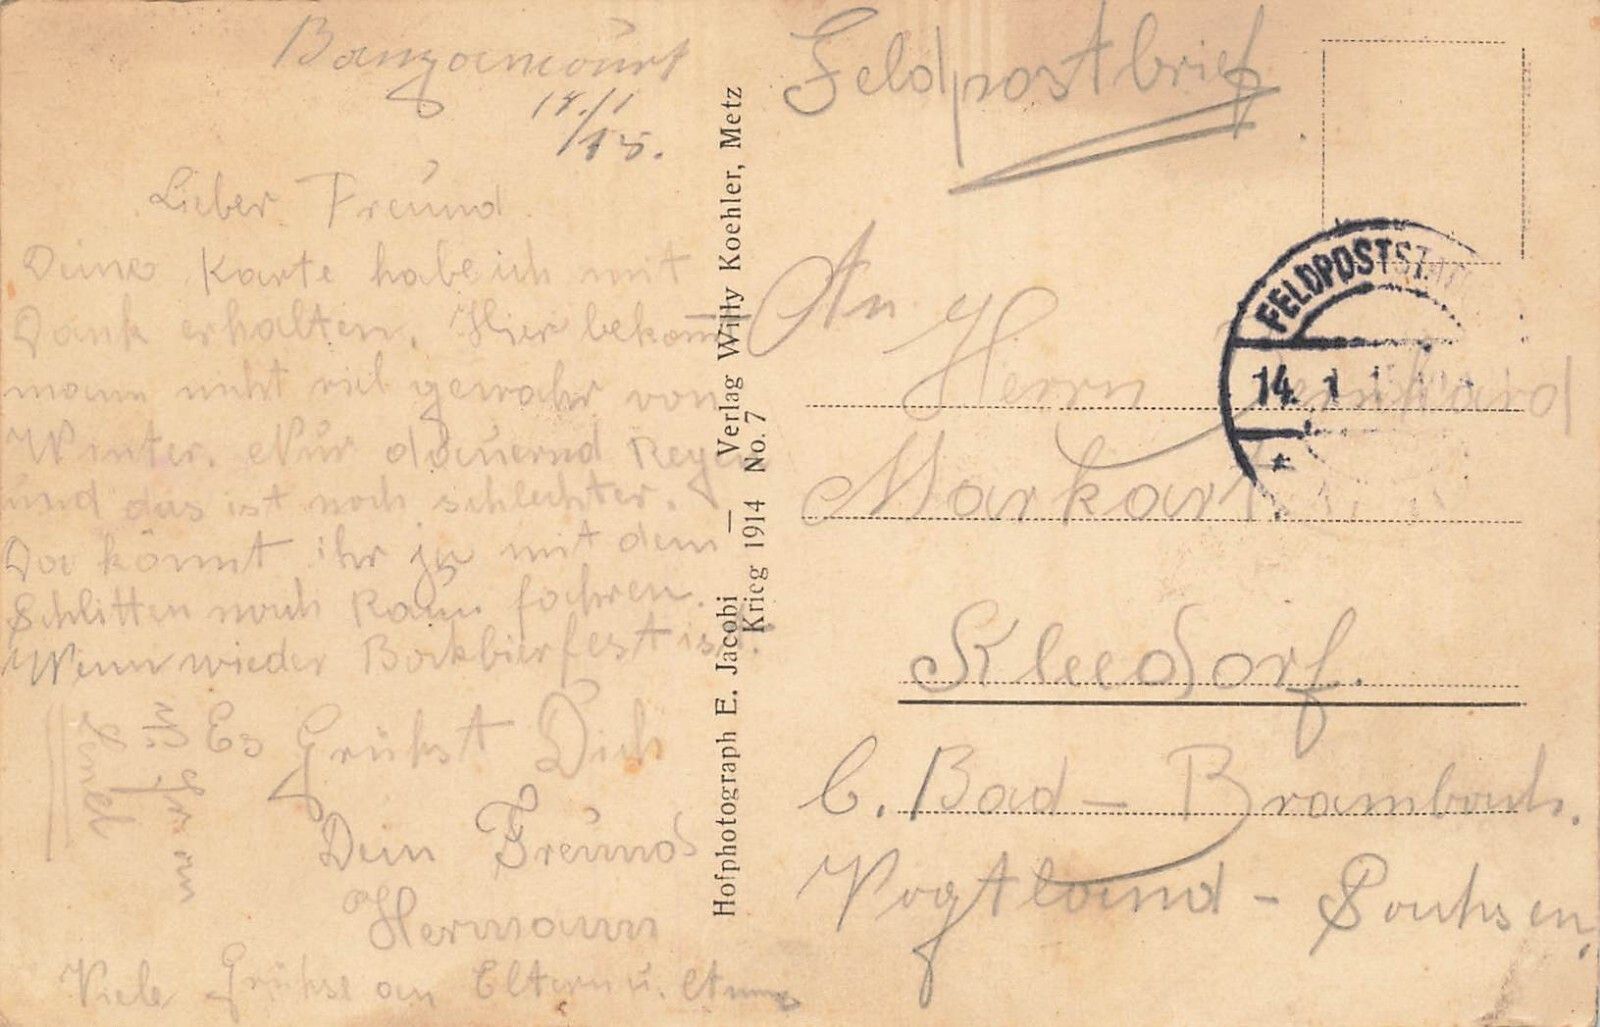 Banzoncourt
14./1
/15.
Lieber Freund
Deine Karte habe ich mit
Dank erhalten. Hier bekom
mann nicht viel gewahr von
Winter. Nur dauernd Regen
und das ist noch schlechter.
Da könnt ihr ja mit dem
Schlitten nach fahren.
Wenn wieder Bockbierfest ist.
Es Grühst Dich
Dein Freund
Hermann
Viele Grühse an Eltern u.
Hofphotograph E. Jacobi — Verlag Willy Koehler, Metz
Krieg 1914 No. 7
Feldpostbrief
An
Herrn Bernhard
Markart
Kleedorf.
b. Bad - Brambach.
Vogtland - Sachsen.
FELDPOSTSTAT
14. 1